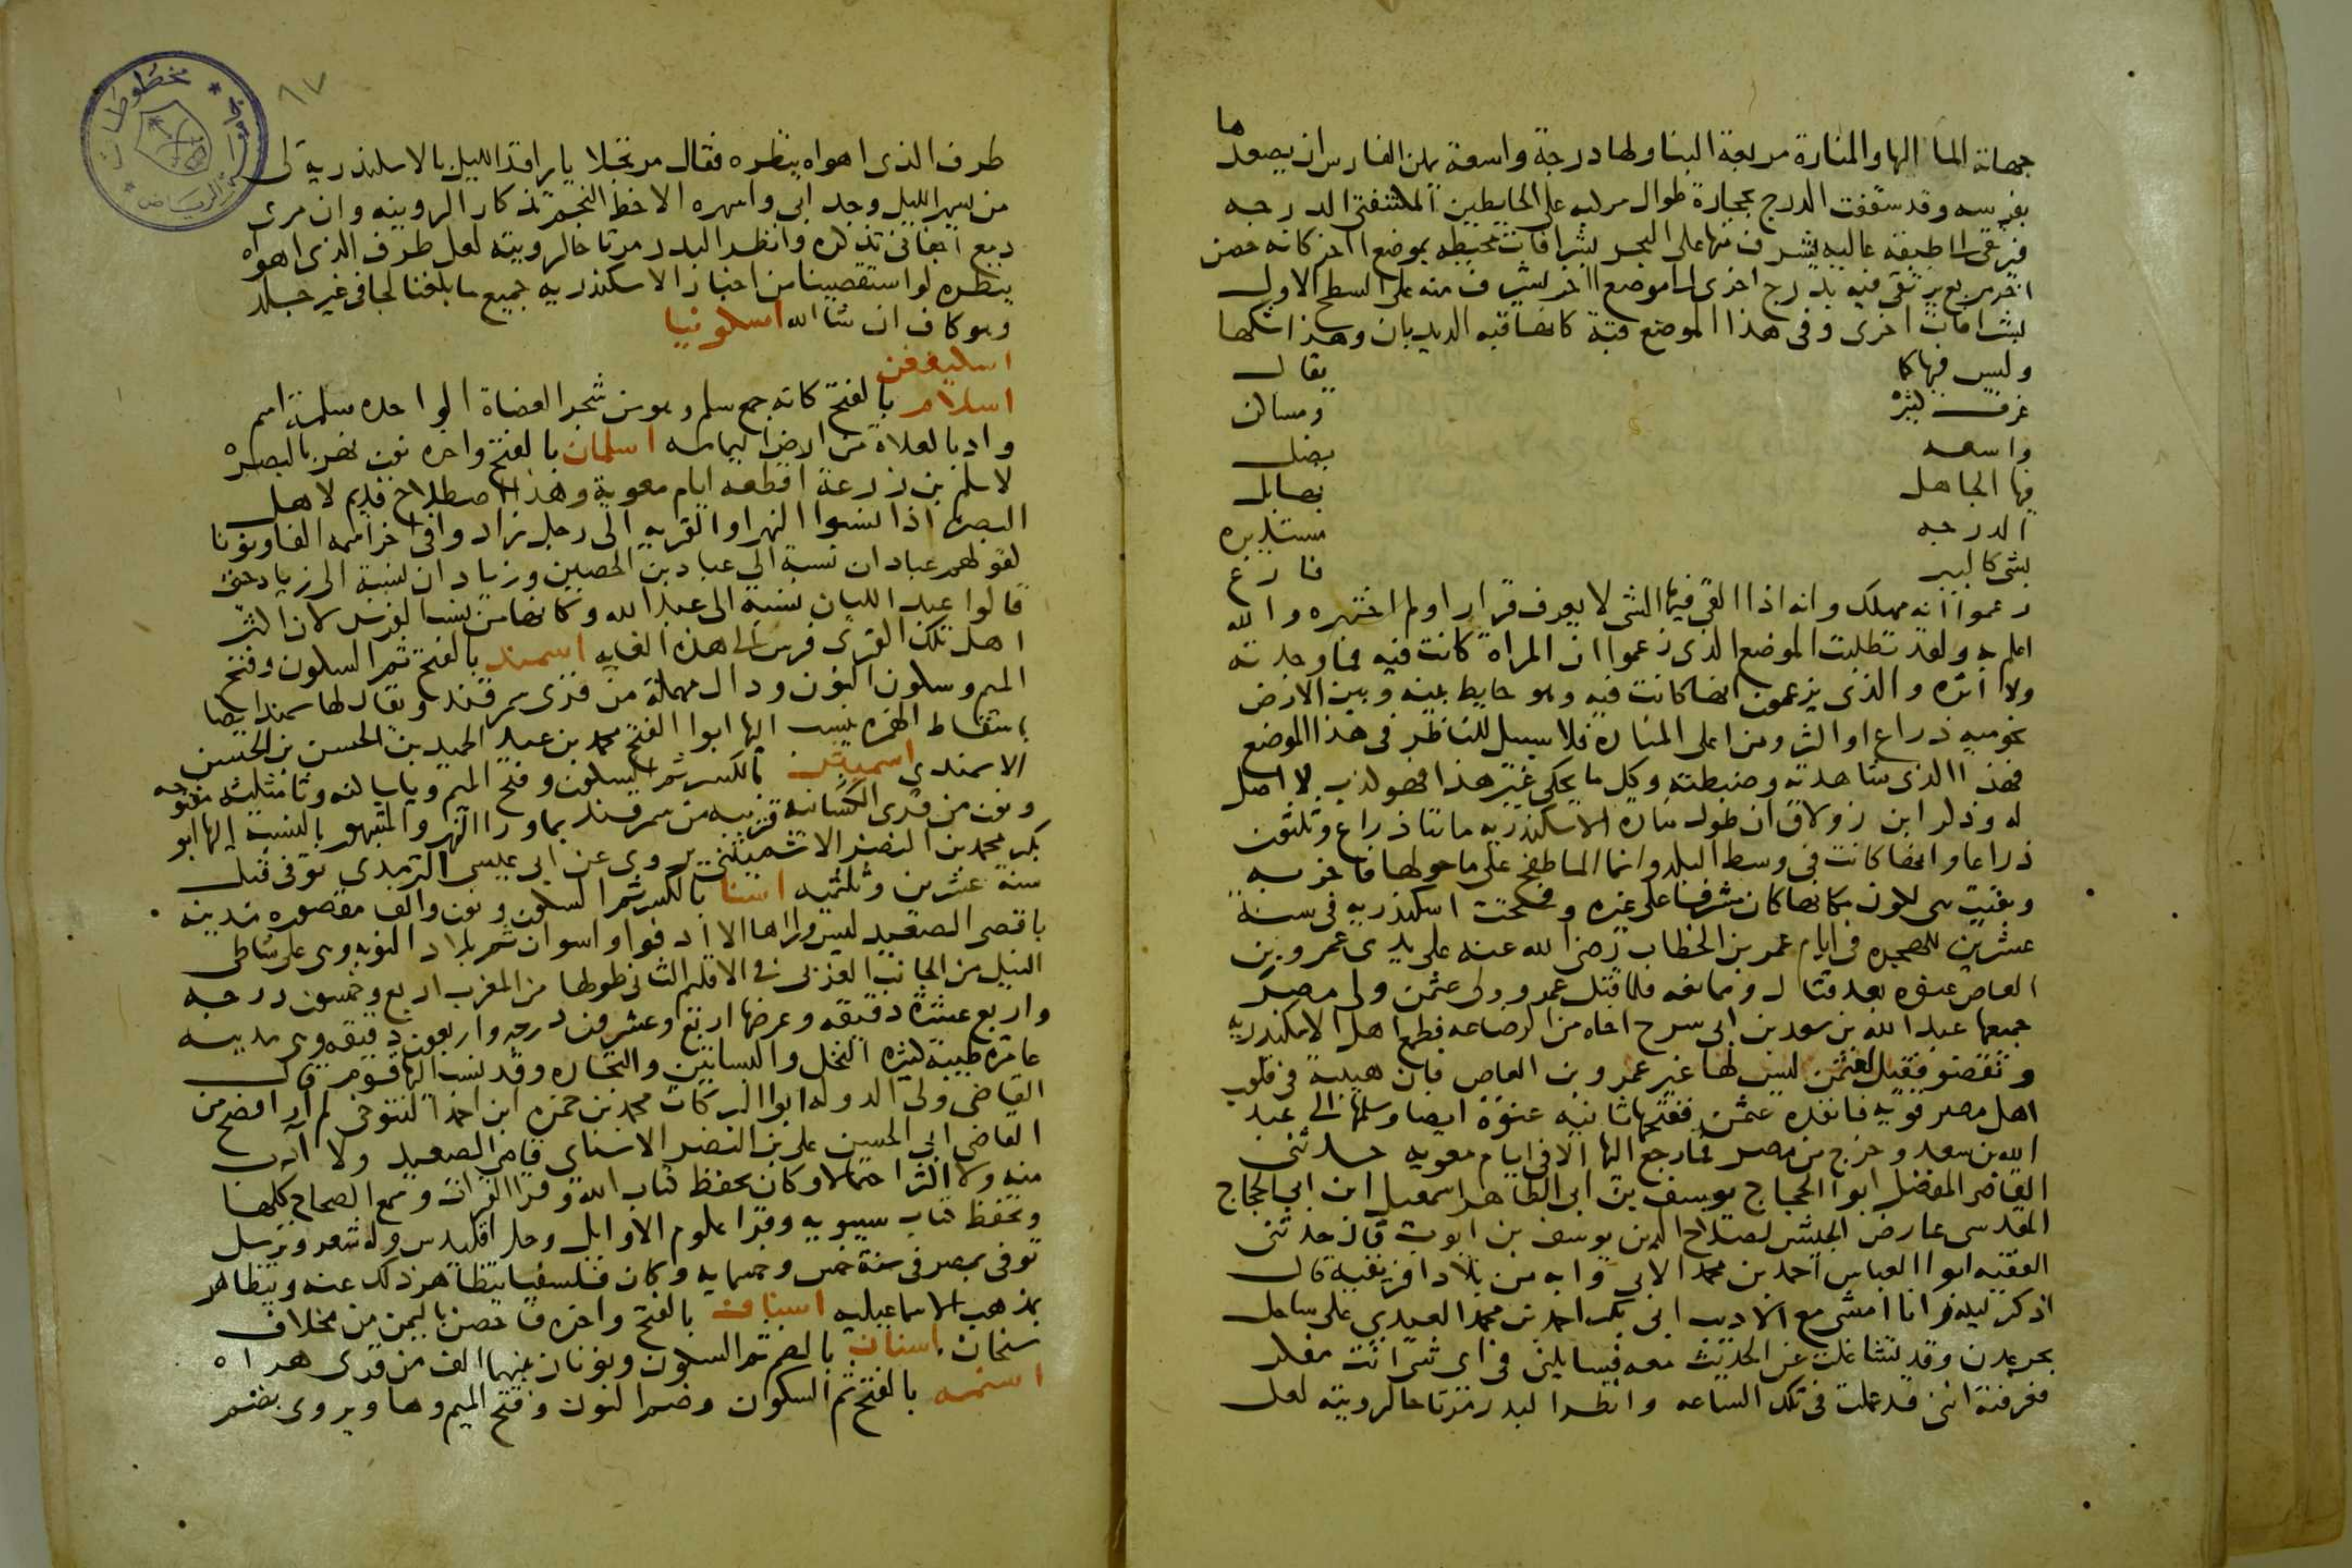 جهاته الماء اليها والمنارة مربعة البنا ولها درجة واسعة يمكن الفارس ان يصعدها
بفرسه وقد سقفت الدرج بحجارة طوال مركبه على الحايطين المكتنفتي الدرجه
فيرتقى الى طبقه عاليه يشرف منها على البحر بشرافات محيطه بموضع اخر كانه حصن
اخر مربع يرتقى فيه بدرج اخرى الى موضع اخر يشرف منه على السطح الاول
بشرافات اخرى وفى هذا الموضع قبة كانها قبه الديدبان وهذا شكلها
وليس فيها كما يقال
غرف كثيرة ومساكن
واسعه يضل
فيها الجاهل بها بل
الدرجه مستديره
بشى كالبير فارغ
زعموا انه مهلك وانه اذا القى فيها الشى لا يعرف قراره ولم اختبره والله
اعلم به ولقد تطلبت الموضع الذى زعموا ان المراة كانت فيه فما وجدته
ولا اثره والذى يزعمون انها كانت فيه وهو حايط بينه وبين الارض
نحو ميه ذراع او اكثر ومن اعلى المنارة فلا سبيل للناظر فى هذا الموضع
فهذا الذى شاهدته وضبطته وكل ما يحكى غير هذا فهو كذب لا اصل
له وذكر ابن زولاق ان طول منارة الاسكندريه مائتا ذراع وثلثون
ذراعا وانها كانت فى وسط البلد وانما الما طفح على ما حولها فاخربه
وبقيت هى لكون مكانها كان مشرفا على غيره وفتحت اسكندريه فى سنة
عشرين للهجره فى ايام عمر بن الخطاب رضى الله عنه على يدى عمرو بن
العاص عنوه بعد قتال وممانعه فلما قتل عمر وولى عثمن ولى مصر
جميعها عبد الله بن سعد بن ابى سرح اخاه من الرضاعه فطمع اهل الاسكندريه
ونقضوا فقيل لعثمن ليس لها غير عمرو بن العاص فان هيبته فى قلوب
اهل مصر قويه فانفذه عثمن ففتحها ثانيه عنوة ايضا وسلمها الى عبد
الله بن سعد وخرج من مصر فما رجع اليها الا فى ايام معويه حدثنى
القاضى المفضل ابو الحجاج يوسف بن ابى الطاهر اسمعيل ابن ابى الحجاج
المقدسى عارض الجيش لصلاح الدين يوسف بن ايوب قال حدثنى
الفقيه ابو العباس احمد بن محمد الابى وابه من بلاد افريقيه قال
اذكر ليلة وانا امشى مع الاديب ابى بكر احمد بن محمد العيدى على ساحل
بحر عدن وقد تشاغلت عن الحديث معه فسايلنى فى اى شى انت مفكر
فعرفته اننى قد عملت فى تلك الساعه وانظر البدر مرتاحا لرويته لعل
طرف الذى اهواه ينظره فقال مرتجلا يا راقد الليل بالاسكندريه لى
من يسهر الليل وجدا بى واسهره الاحظ النجم تذكارا لرويته وان مرى
دمع اجفانى تذكره وانظر البدر مرتاحا لرويته لعل طرف الذى اهواه
ينظره لو استقصينا من اخبار الاسكندريه جميع ما بلغنا لجا فى غير جلد
وهو كاف ان شا الله اسكونيا
اسليغفن
اسلام بالفتح كانه جمع سلم وهو من شجر العضاة الواحده سلمة اسم
واد بالعلاة من ارض اليمامه اسلمان بالفتح واخره نون نهر بالبصرة
لاسلم بن زرعة اقطعه ايام معوية وهذا اصطلاح قديم لاهل
البصره اذا نسبوا النهر او القريه الى رجل زادوا فى اخر اسمه الفا ونونا
لقولهم عبادان نسبة الى عباد بن الحصين وزيادان نسبة الى زياد حتى
قالوا عبد اللان نسبة الى عبد الله وكانها من نسب الفرس لان اكثر
اهل تلك القرى فرس الى هذه الغايه اسمند بالفتح ثم السكون وفتح
الميم وسكون النون ودال مهملة من قرى سمرقند ويقال لها سمند ايضا
باسقاط الهمزه ينسب اليها ابوا الفتح محمد بن عبد الحميد بن الحسن بن الحسين
الاسمندى اسميثن بالكسر ثم السكون وفتح الميم ويا ساكنه وثا مثلثه مفتوحه
ونون من قرى الكشانيه قريبه من سمرقند بما ورا النهر والمشهور بالنسبة اليها ابو
بكر محمد بن النضر الاسميثنى يروى عن ابى عيسى الترمذى توفى قبل
سنة عشرين وثلثميه اسنا بالكسر ثم السكون ونون والف مقصوره مدينه
باقصى الصعيد ليس وراها الا ادفوا واسوان ثم بلاد النوبه وهى على شاطى
النيل من الجانب الغربى فى الاقليم الثانى طولها من المغرب اربع وخمسون درجه
واربع عشرة دقيقه وعرضها اربع وعشرون درجه واربعون دقيقه وهى مدينه
عامره طيبة كثيره النخل والبساتين والتجاره وقد نسب اليها قوم قال
القاضى ولى الدوله ابوا البركات محمد بن حمزه ابن احمد التنوخى لم ار افصح من
القاضى ابى الحسين على بن النضر الاسناى قاضى الصعيد ولا ادب
منه ولا اكثر احتمالا وكان يحفظ كتاب الله وقرا القرات وسمع الصحاح كلها
ويحفظ كتاب سيبويه وقرا علوم الاوايل وحل اقليدس وله شعر وترسل
توفى بمصر فى سنة خمس وخمسمايه وكان فلسفيا يتظاهر ذلك عنه ويتظاهر
بمذهب الاسماعيليه اسناف بالفتح واخره فا حصن باليمن من مخلاف
سنحان اسنان بالضم ثم السكون ونونان بينهما الف من قرى هراه
اسنمه بالفتح ثم السكون وضم النون وفتح الميم وها ويروى بضم
٦٧
مخطوطات
الرياض